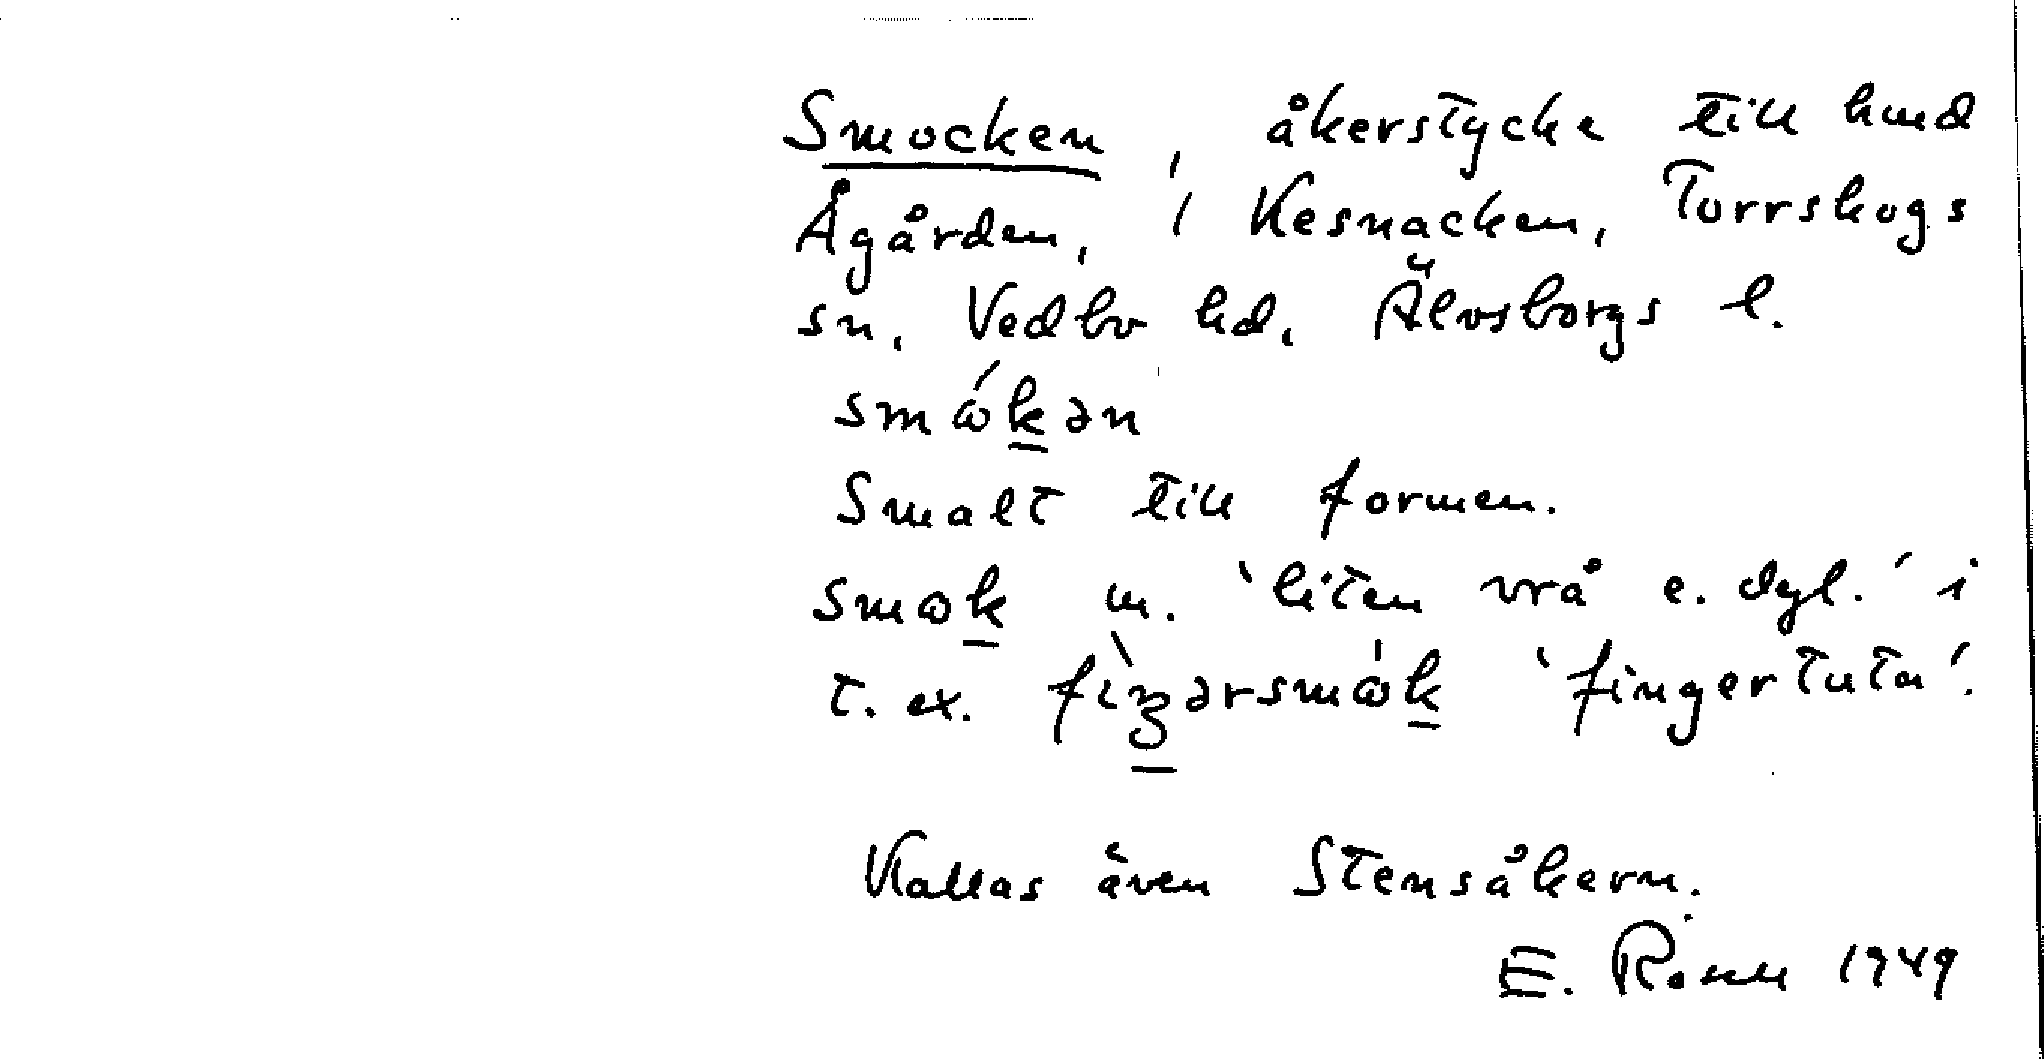 Smocken, åkerstycke till hmd
Ågården, i Kesnacken, Torrskogs
sn, Vedbo hd, Älvsborgs l.
smω̇́kən
Smalt till formen.
smωk m. 'liten vrå e. dyl.' i
t. ex. fìŋərsmω̇k 'fingertuta'.
Kallas även Stensåkern.
E. 1949